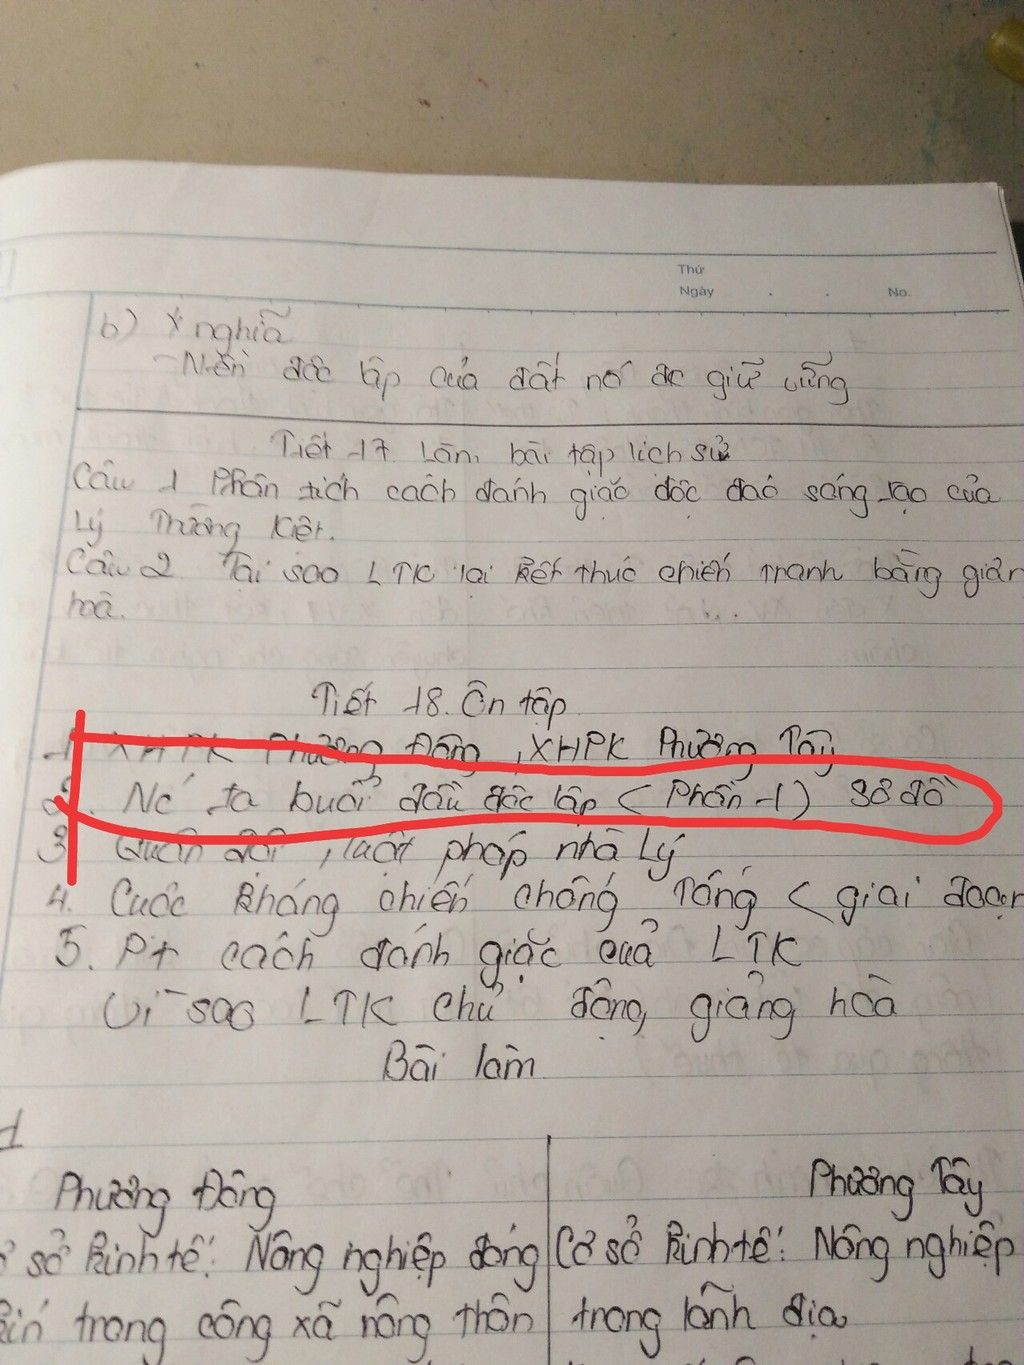 Thứ
Ngày . . No.
b) Ý nghĩa
- Nền độc lập của đất nc đc giữ vững
Tiết 17. Làm bài tập lịch sử
Câu 1 Phân tích cách đánh giặc độc đáo sáng tạo của
Lý Thường Kiệt.
Câu 2 Tại sao LTK lại kết thúc chiến tranh bằng giản
hoà.
Tiết 18. Ôn tập
1. XHPK Phương Đông, XHPK Phương Tây
2. Nc ta buổi đầu độc lập (Phần 1) sơ đồ
3. Quân đội, luật pháp nhà Lý
4. Cuộc kháng chiến chống Tống (giai đoạn
5. PT cách đánh giặc của LTK
Vì sao LTK chủ động giảng hoà
Bài làm
1
Phương Đông Phương Tây
sở kinh tế: Nông nghiệp đóng Cơ sở kinh tế: Nông nghiệp
kín trong công xã nông thôn trong lãnh địa